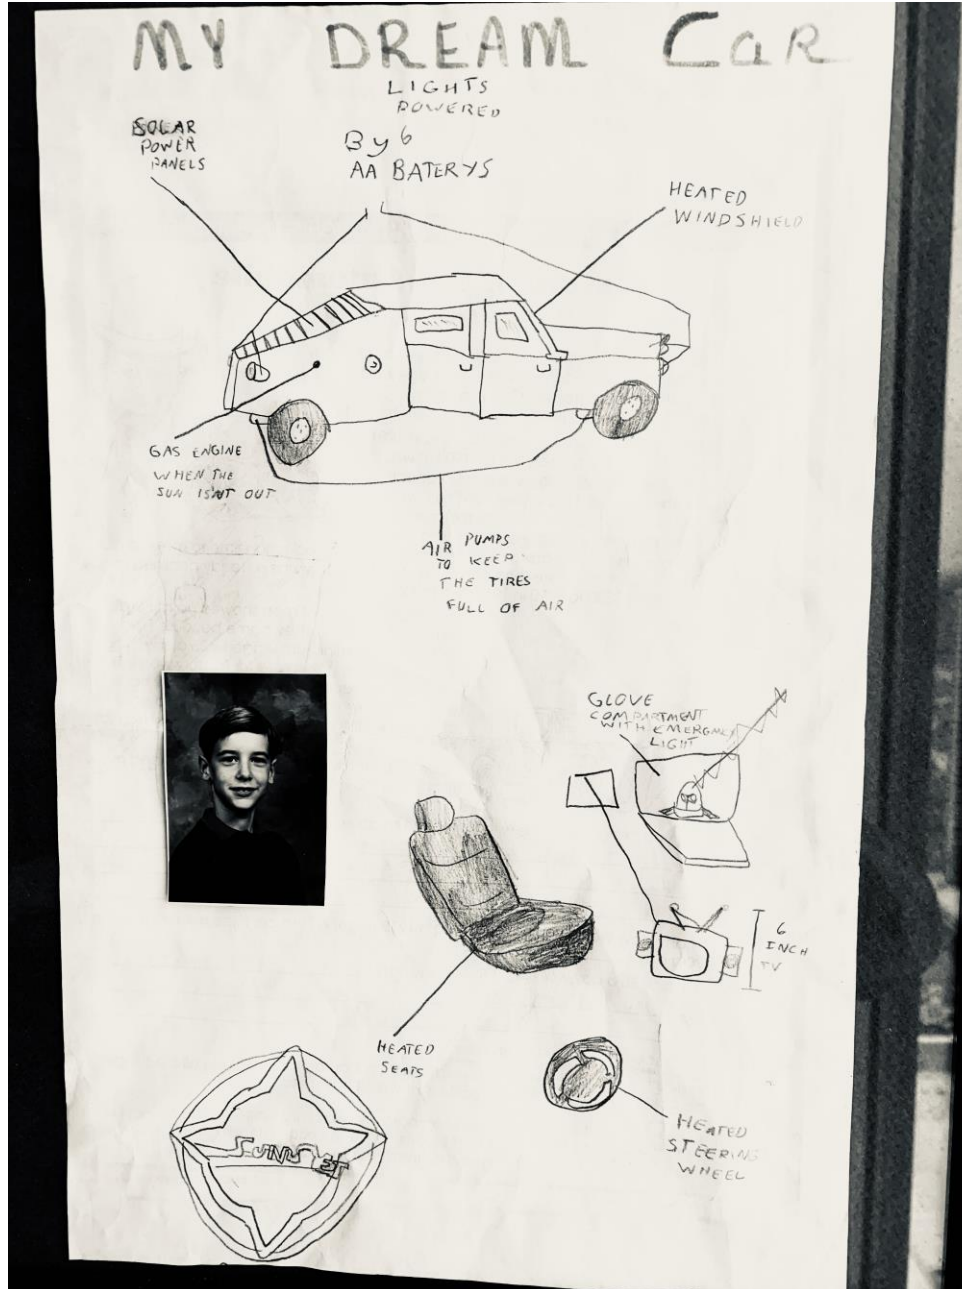 MY DREAM CaR
LIGHTS
POWERED
By 6
AA BATERYS
SOLAR
POWER
PANELS
HEATED
WINDSHIELD
GAS ENGINE
WHEN THE
SUN ISNT OUT
AIR PUMPS
TO KEEP
THE TIRES
FULL OF AIR
GLOVE
COMPARTMENT
WITH EMERGENCY
LIGHT
6
INCH
TV
HEATED
SEATS
HEATED
STEERING
WHEEL